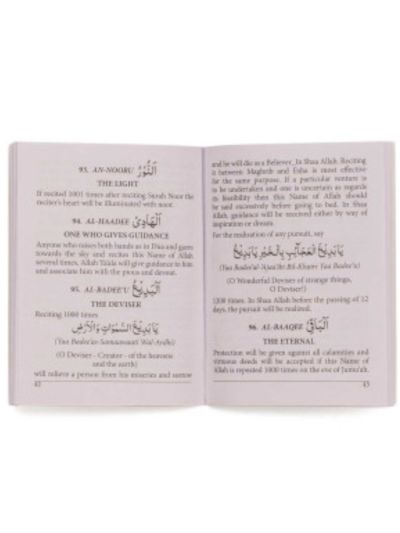 93. AN-NOORU اَلنُّوْرُ
THE LIGHT
If recited 1001 times after reciting Surah Noor the
reciter's heart will be illuminated with noor.
94. AL-HAADEE اَلْهَادِىْ
ONE WHO GIVES GUIDANCE
Anyone who raises both hands as in Dua and gazes
towards the sky and recites this Name of Allah
several times, Allah Ta'ala will give guidance to him
and associate him with the pious and devout.
95. AL-BADEE'U اَلْبَدِيْعُ
THE DEVISER
Reciting 1000 times
يَا بَدِيْعَ السَّمٰوَاتِ وَالْاَرْضِ
(Yaa Badee'as-Samaawaati Wal-Ardhi)
(O Deviser - Creator - of the heavens
and the earth)
will relieve a person from his miseries and sorrow
42
and he will die as a Believer, In Shaa Allah. Reciting
it between Maghrib and Esha is most effective
for the same purpose. If a particular venture is
to be undertaken and one is uncertain as regards
its feasibility then this Name of Allah should
be said excessively before going to bed. In Shaa
Allah, guidance will be received either by way of
inspiration or dream.
For the realisation of any pursuit, say
يَا بَدِيْعَ الْعَجَآئِبِ بِالْخَيْرِ يَا بَدِيْعُ
(Yaa Badee'al-'Ajaa'ib Bil-Khayri Yaa Badee'u)
(O Wonderful Deviser of strange things,
O Deviser!)
1200 times. In Shaa Allah before the passing of 12
days, the pursuit will be realized.
96. AL-BAAQEE اَلْبَاقِىْ
THE ETERNAL
Protection will be given against all calamities and
virtuous deeds will be accepted if this Name of
Allah is repeated 1000 times on the eve of Jumu'ah.
43